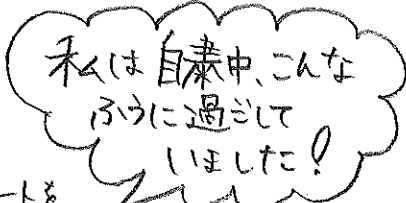 私は自粛中、こんな
ふうに過ごして
いました！
ートを